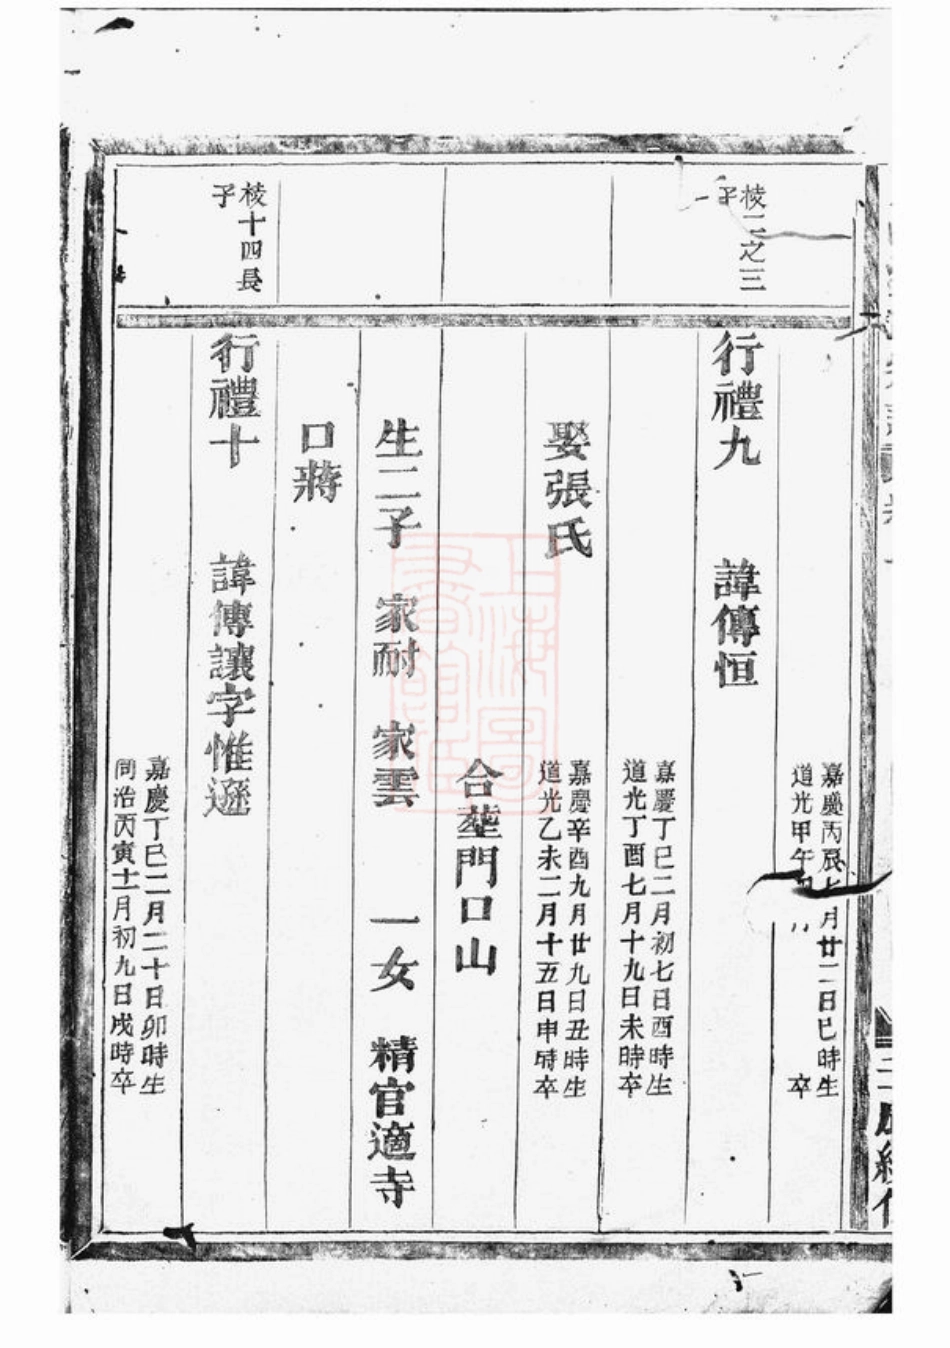 嘉慶丙辰七月廿二日巳時生
道光甲午 卒
棱二之三子
行禮九 諱傳恒
嘉慶丁巳二月初七日酉時生
道光丁酉七月十九日未時卒
娶張氏
嘉慶辛酉九月廿九日丑時生
道光乙未二月十五日申時卒
合塟門口山
生二子 家耐 家雲 一女 精官適寺
口蔣
棱十四長子
行禮十 諱傳讓字惟遜
嘉慶丁巳二月二十日卯時生
同治丙寅十一月初九日戌時卒
上海圖書館藏